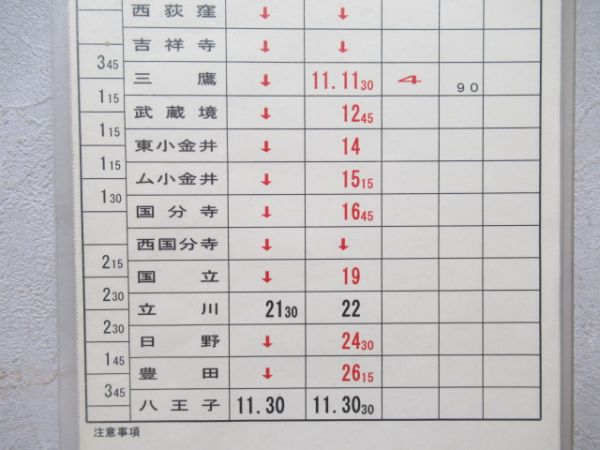 西荻窪 ↓ ↓
吉祥寺 ↓ ↓
3 45
三鷹 ↓ 11.11 30 4 90
1 15
武蔵境 ↓ 12 45
1 15
東小金井 ↓ 14
1 15
ム小金井 ↓ 15 15
1 30
国分寺 ↓ 16 45
西国分寺 ↓ ↓
2 15
国立 ↓ 19
2 30
立川 21 30 22
2 30
日野 ↓ 24 30
1 45
豊田 ↓ 26 15
3 45
八王子 11.30 11.30 30
注意事項